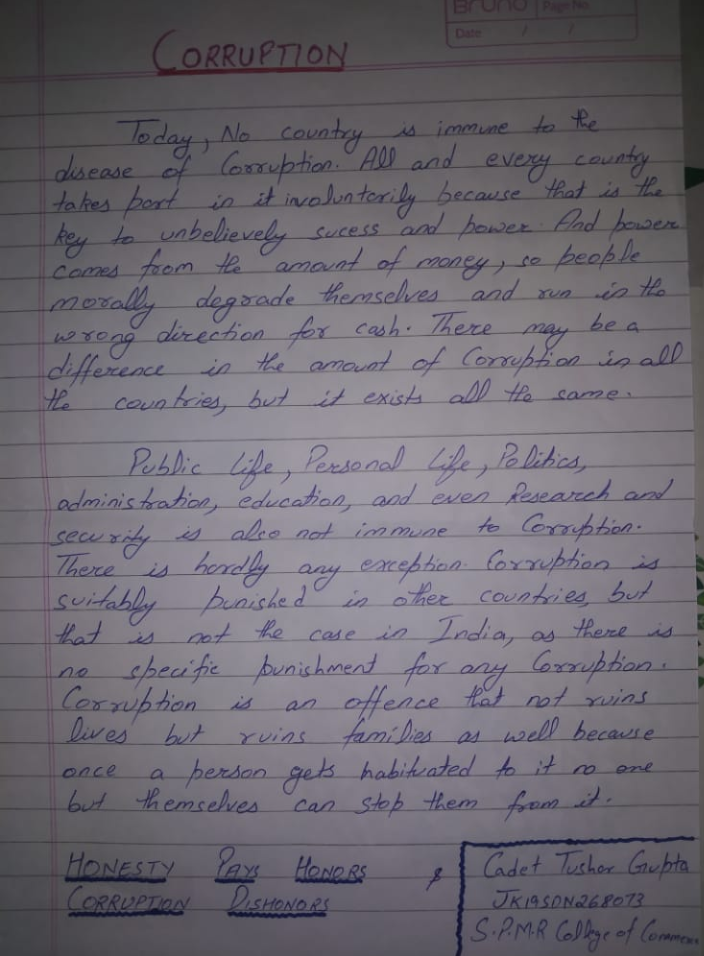 BRUNO Page No.
Date / /
CORRUPTION
Today, No country is immune to the
disease of Corruption. All and every country
takes part in it involuntarily because that is the
key to unbelievely sucess and power. And power
comes from the amount of money, so people
morally degrade themselves and run in the
wrong direction for cash. There may be a
difference in the amount of Corruption in all
the countries, but it exists all the same.
Public life, Personal life, Politics,
administration, education, and even Research and
security is also not immune to Corruption.
There is hardly any exception. Corruption is
suitably punished in other countries, but
that is not the case in India, as there is
no specific punishment for any Corruption.
Corruption is an offence that not ruins
lives but ruins families as well because
once a person gets habituated to it no one
but themselves can stop them from it.
HONESTY PAYS HONORS &
CORRUPTION DISHONORS
Cadet Tushar Gupta
JK19SDN268073
S.P.M.R College of Commerce